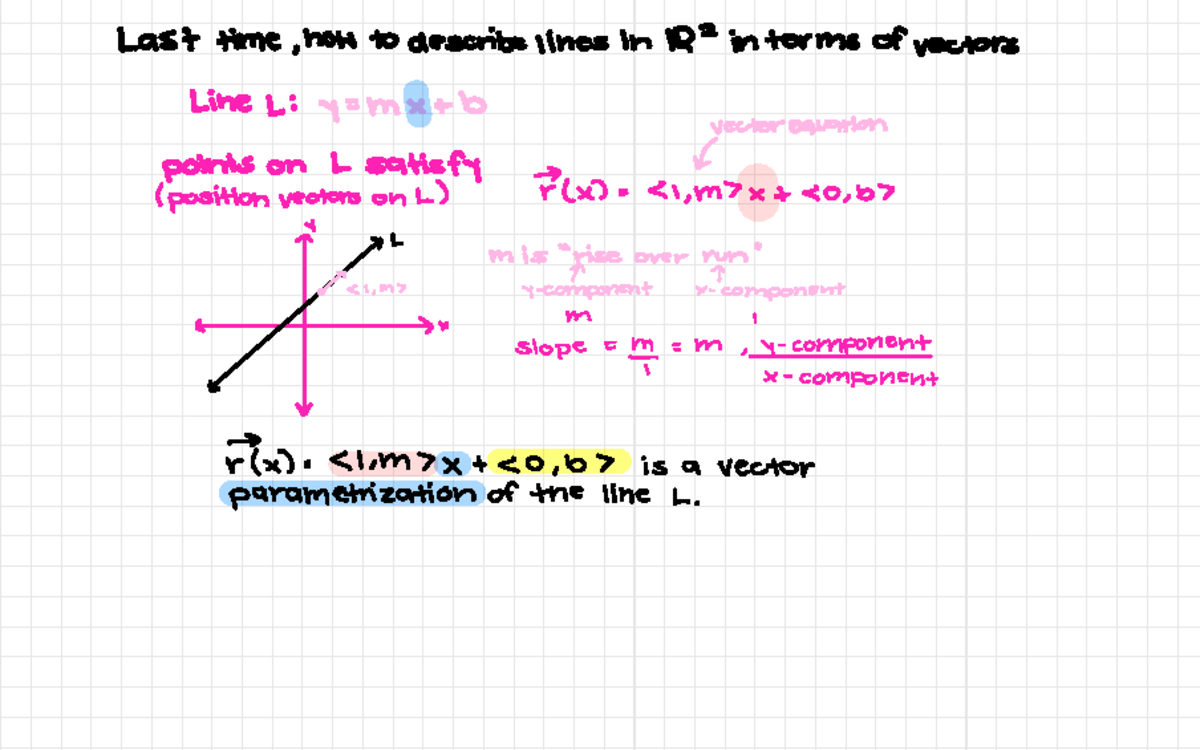 Last time, how to describe lines in ℝ² in terms of vectors
Line L: y = mx + b
vector equation
points on L satisfy
(position vectors on L)
r⃗(x) = <1,m>x + <0,b>
y
L
<1,m>
x
m is "rise over run"
y-component x-component
m 1
slope = m/1 = m , y-component/x-component
r⃗(x) = <1,m>x + <0,b> is a vector
parametrization of the line L.